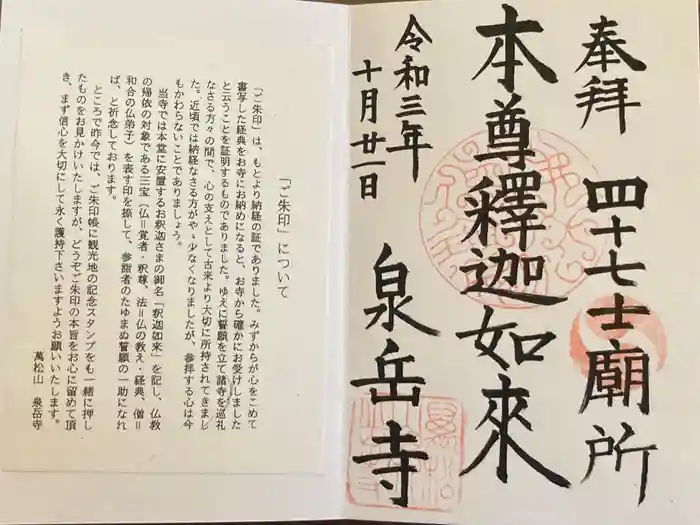 奉拝
四十七士廟所
本尊釋迦如來
令和三年
十月廿一日
泉岳寺
「ご朱印」について
「ご朱印」は、もとより納経の証でありました。みずからが心をこめて
書写した経典をお寺にお納めになると、お寺から確かにお受けしました
と云うことを証明するものでありました。ゆえに誓願を立て諸寺を巡礼
なさる方々の間で、心の支えとして古来より大切に所持されてきまし
た。近頃では納経なさる方がやゝ少なくなりましたが、参拝する心は今
もかわらないことでありましょう。
当寺では本堂に安置するお釈迦さまの御名「釈迦如来」を記し、仏教
の帰依の対象である三宝（仏＝覚者・釈尊、法＝仏の教え・経典、僧＝
和合の仏弟子）を表す印を捺して、参詣者のたゆまぬ誓願の一助になれ
ば、と祈念しております。
ところで昨今では、ご朱印帳に観光地の記念スタンプをも一緒に押し
たものをお見かけいたしますが、どうぞご朱印の本旨をお心に留めて頂
き、まず信心を大切にして永く護持下さいますようお願いいたします。
萬松山　泉岳寺